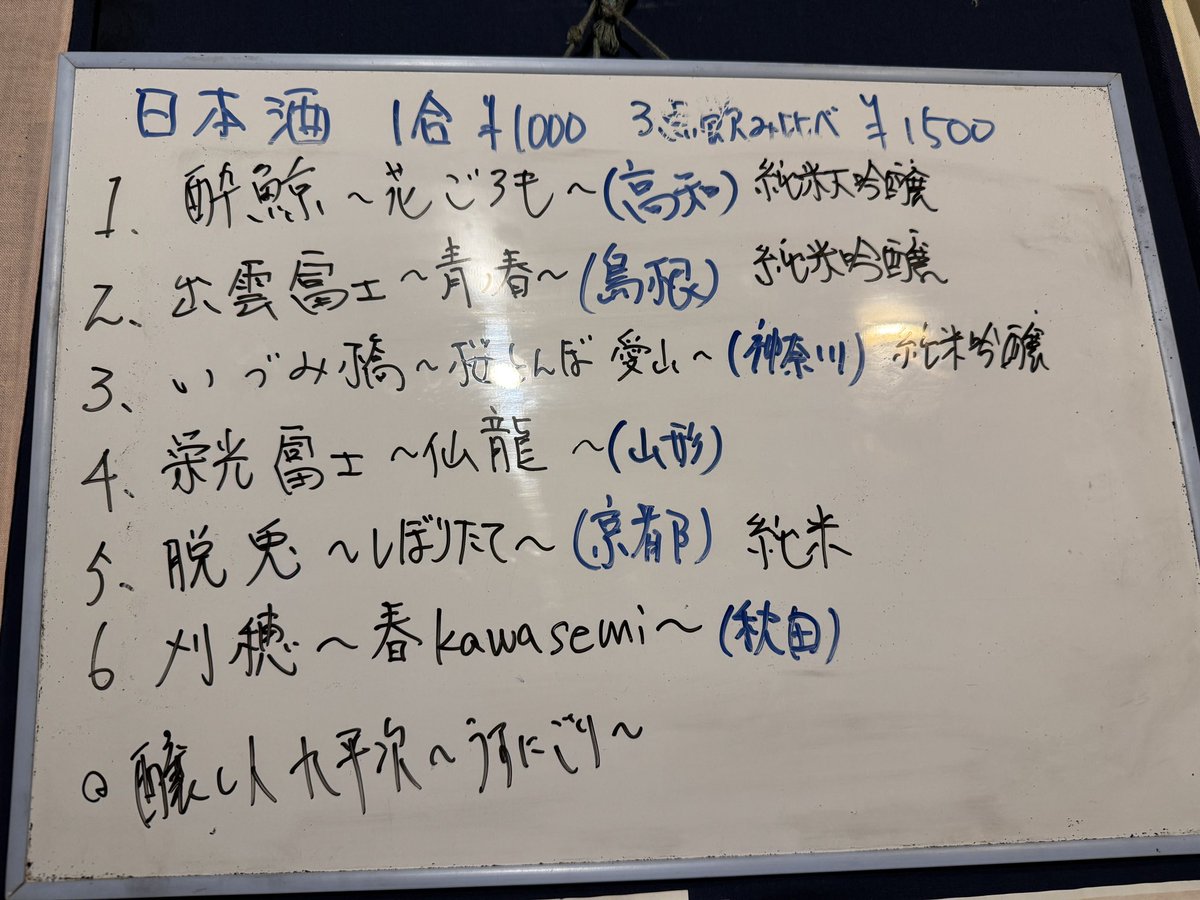 日本酒 1合 ¥1000 3点飲み比べ ¥1500
1. 酔鯨 〜花ごろも〜 (高知) 純米大吟醸
2、出雲富士 〜青春〜 (島根) 純米吟醸
3、いづみ橋〜桜とんぼ 愛山〜 (神奈川) 純米吟醸
4、栄光富士 〜仙龍〜 (山形)
5、脱兎 〜しぼりたて〜 (京都) 純米
6 刈穂〜春kawasemi〜 (秋田)
○醸し人九平次〜うすにごり〜